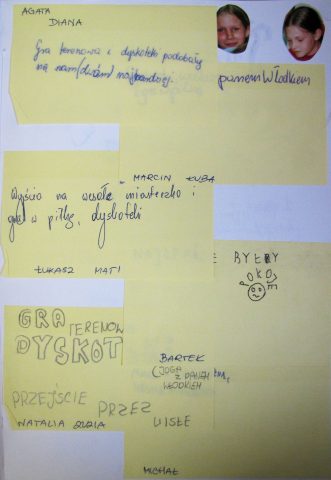 AGATA
DIANA
Gra terenowa i dyskoteki podobały
się nam (dwóm) najbardziej.
panem Włodkiem
MARCIN ŁUBA
Wyjście na wesołe miasteczko i
gra w piłkę, dyskoteki
ŁUKASZ MATI
BYŁBY
OKEJ
GRA
TERENOW
DYSKOT
BARTEK
(JOGA
Z PANEM
WŁODKIEM
PRZEJŚCIE PRZEZ
WISŁE
NATALIA ZUZIA
MICHAŁ